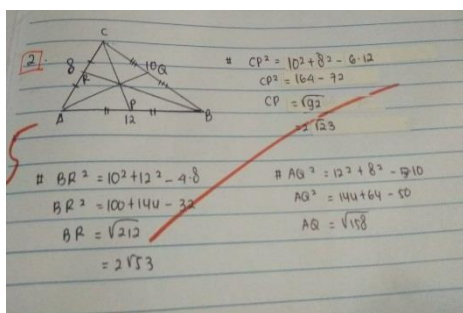 2.
C
8
R
10
Q
A
P
12
B
# CP² = 10² + 8² - 6·12
CP² = 164 - 72
CP = √92
= 2√23
5
# BR² = 10² + 12² - 4·8
BR² = 100 + 144 - 32
BR = √212
= 2√53
# AQ² = 12² + 8² - 5·10
AQ² = 144 + 64 - 50
AQ = √158